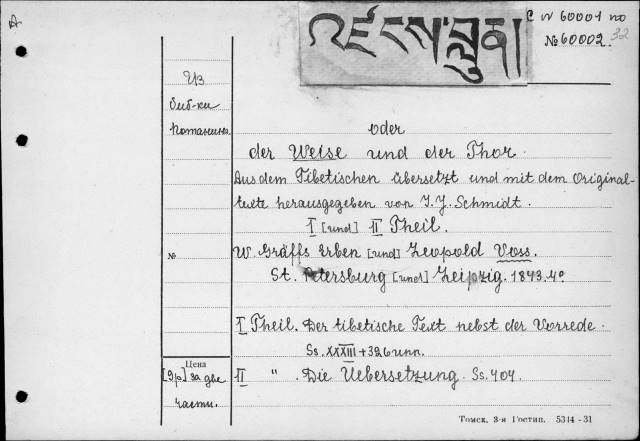 A
С № 60001 по
№ 60002.
32
འཛངས་བླུན།
Из
биб-ки
Потанина.
oder
der Weise und der Thor.
Aus dem Tibetischen übersetzt und mit dem Original-
texte herausgegeben von I. J. Schmidt.
I [und] II Theil.
№
W. Gräffs Erben [und] Leopold Voss.
St. Petersburg [und] Leipzig. 1843. 4°
I Theil. Der tibetische Text nebst der Vorrede.
Ss. XXXIII + 326 unn.
Цена
[9 р] за две
части.
II " . Die Uebersetzung. Ss. 404.
Томск. 3-я Гостип. 5314-31